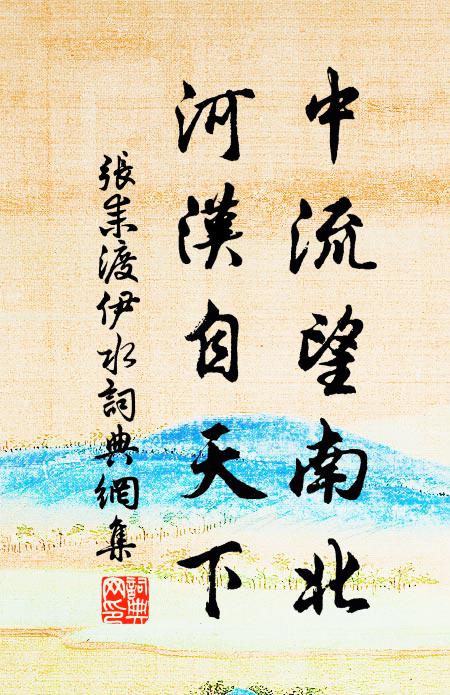 中流望南北
河漢自天下
張耒渡伊水詞典網集
詞典